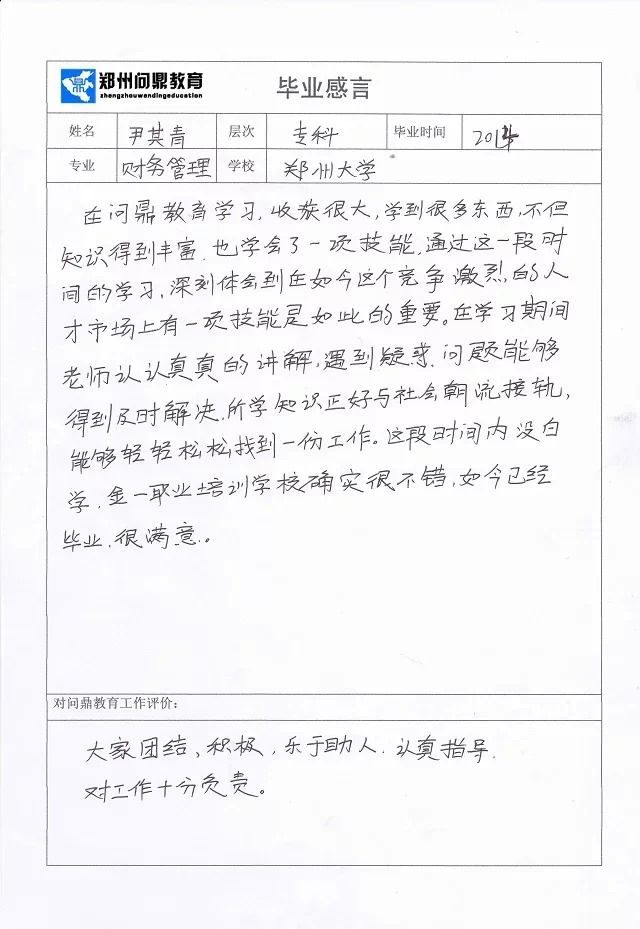 郑州问鼎教育
zhengzhouwendingeducation
毕业感言
姓名 尹其青 层次 专科 毕业时间
专业 财务管理 学校 郑州大学
在问鼎教育学习,收获很大,学到很多东西,不但
知识得到丰富,也学会了一项技能,通过这一段时
间的学习,深刻体会到在如今这个竞争激烈的人
才市场上有一项技能是如此的重要。在学习期间
老师认认真真的讲解,遇到疑惑、问题能够
得到及时解决.所学知识正好与社会朝流接轨,
能够轻轻松松找到一份工作。这段时间内没白
学,金一职业培训学校确实很不错,如今已经
毕业,很满意。
对问鼎教育工作评价:
大家团结、积极,乐于助人.认真指导.
对工作十分负责。